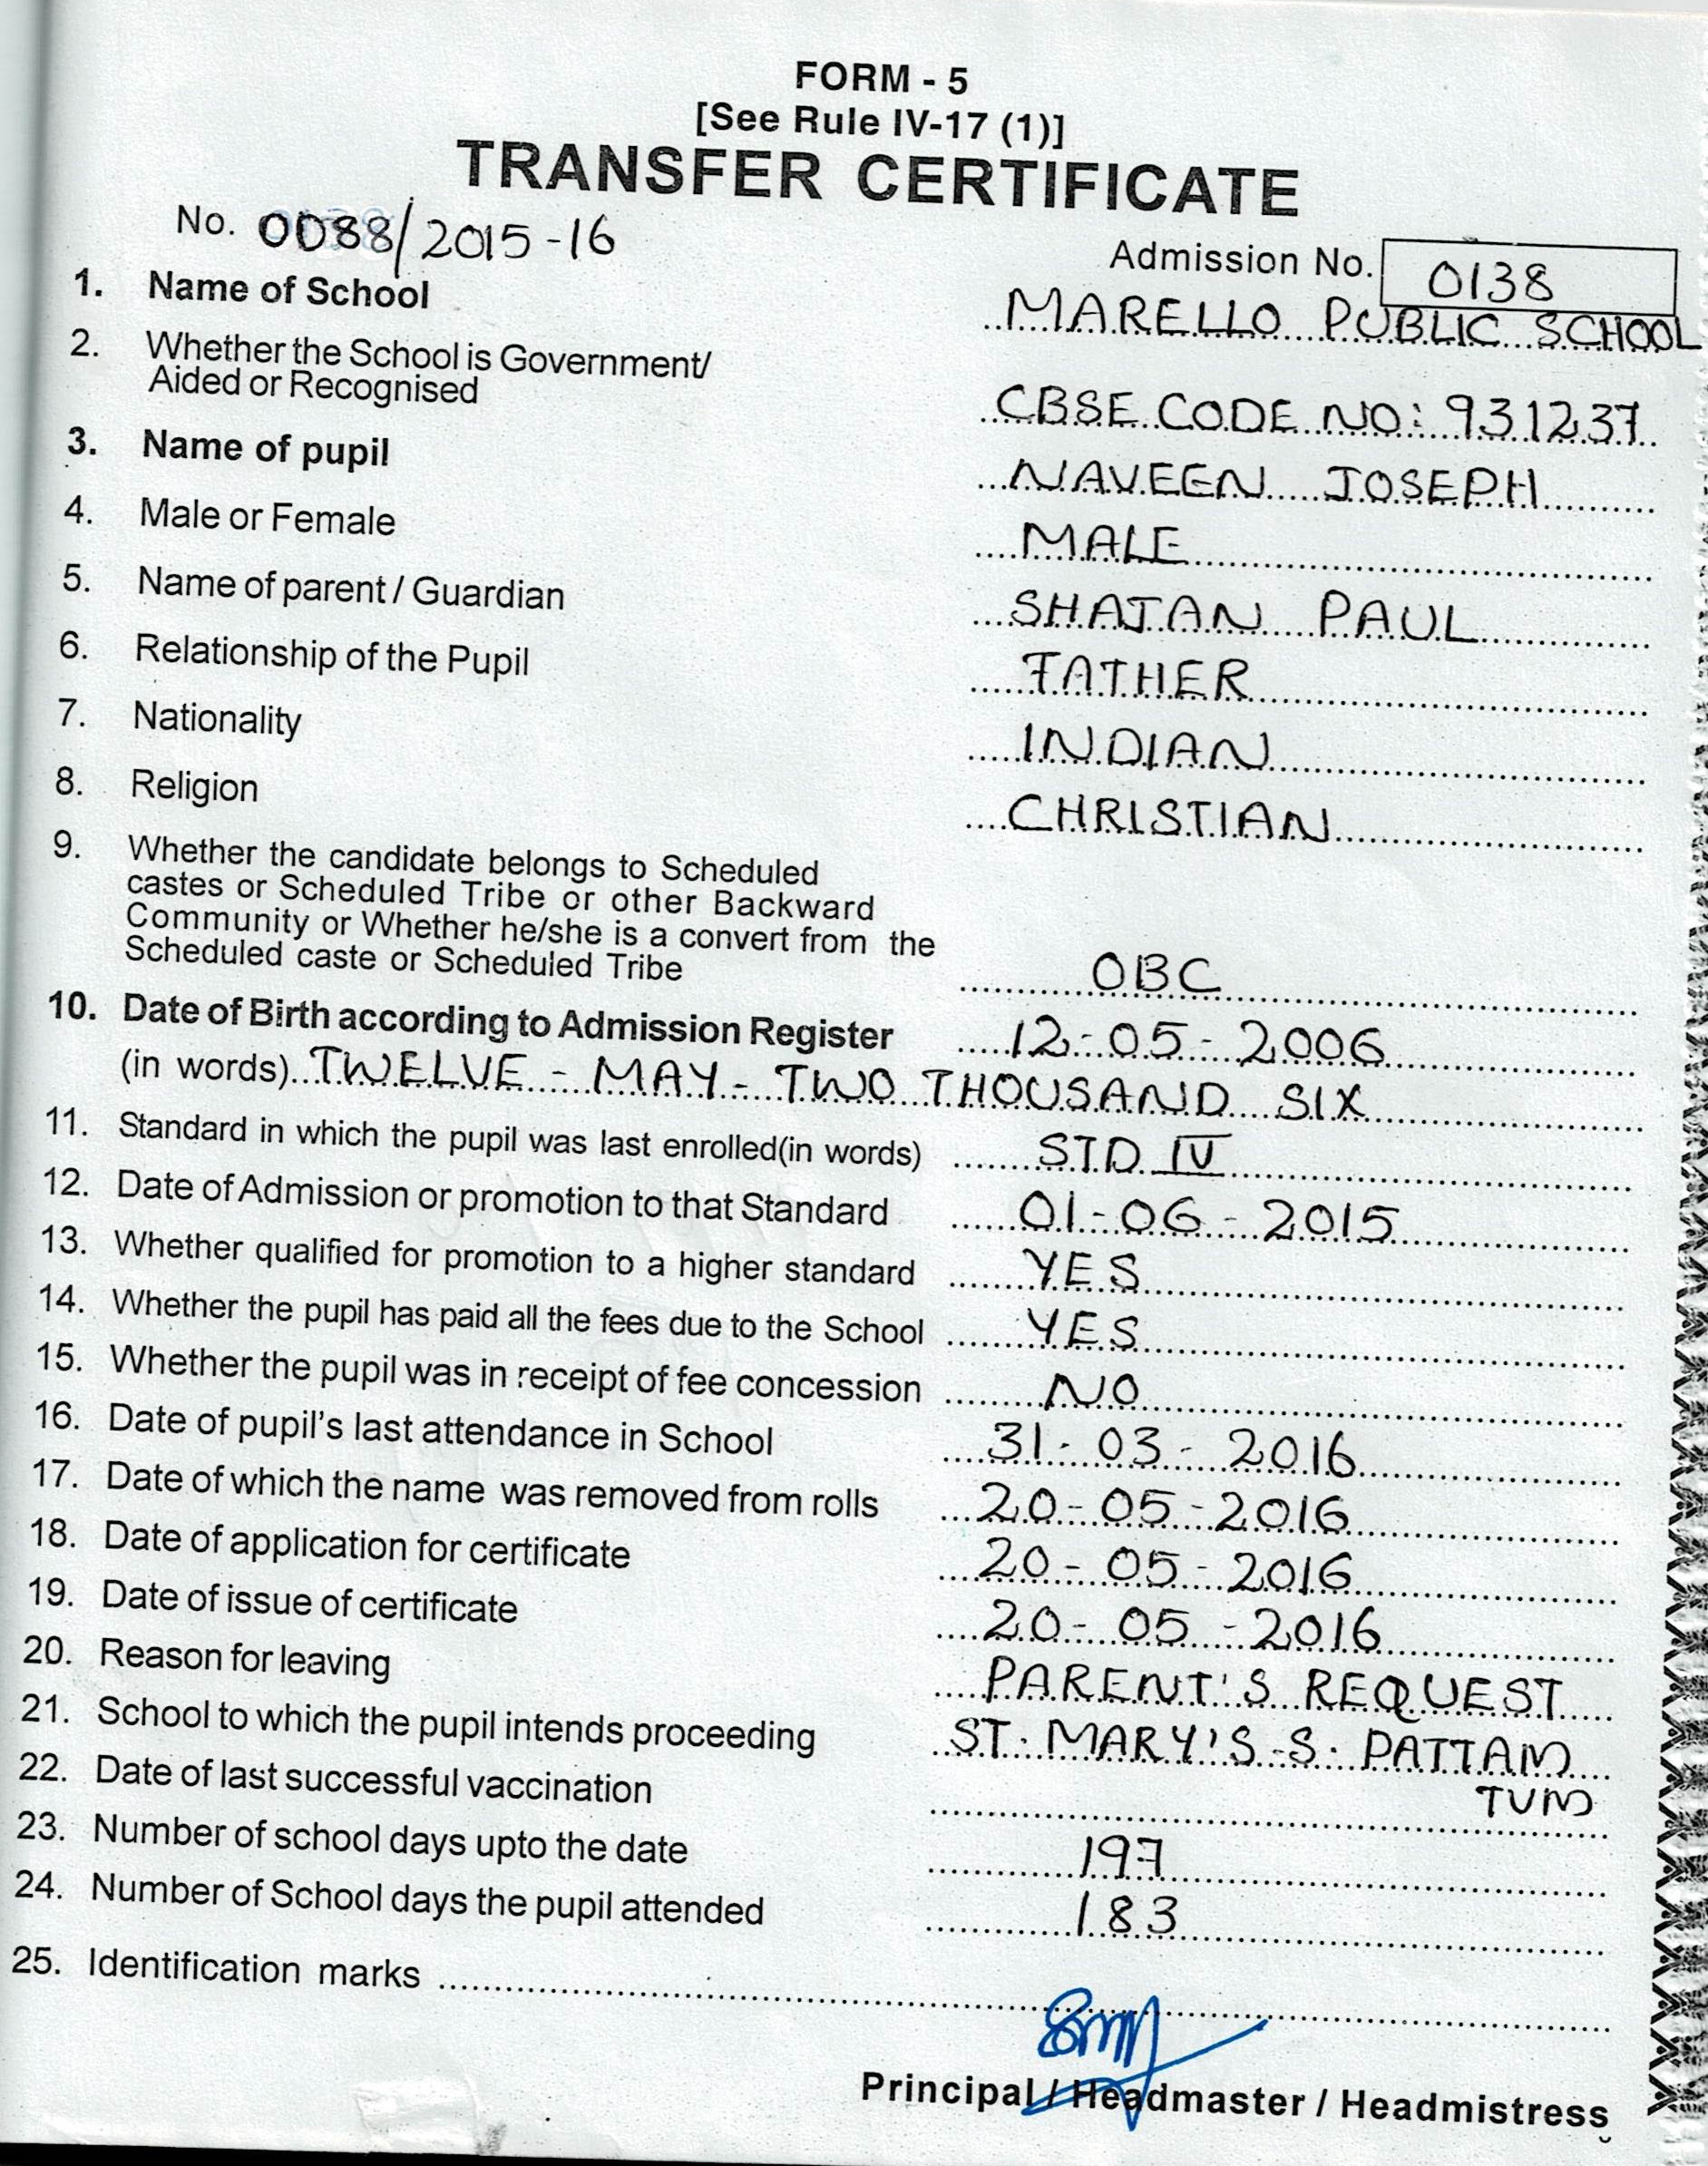 FORM - 5
[See Rule IV-17 (1)]
TRANSFER CERTIFICATE
No. 0088/2015-16
Admission No. 0138
1. Name of School MARELLO PUBLIC SCHOOL
2. Whether the School is Government/
Aided or Recognised CBSE CODE NO: 931237
3. Name of pupil NAVEEN JOSEPH
4. Male or Female MALE
5. Name of parent / Guardian SHAJAN PAUL
6. Relationship of the Pupil FATHER
7. Nationality INDIAN
8. Religion CHRISTIAN
9. Whether the candidate belongs to Scheduled
castes or Scheduled Tribe or other Backward
Community or Whether he/she is a convert from the
Scheduled caste or Scheduled Tribe OBC
10. Date of Birth according to Admission Register 12-05-2006
(in words) TWELVE - MAY - TWO THOUSAND SIX
11. Standard in which the pupil was last enrolled(in words) STD IV
12. Date of Admission or promotion to that Standard 01-06-2015
13. Whether qualified for promotion to a higher standard YES
14. Whether the pupil has paid all the fees due to the School YES
15. Whether the pupil was in receipt of fee concession NO
16. Date of pupil's last attendance in School 31-03-2016
17. Date of which the name was removed from rolls 20-05-2016
18. Date of application for certificate 20-05-2016
19. Date of issue of certificate 20-05-2016
20. Reason for leaving PARENT'S REQUEST
21. School to which the pupil intends proceeding ST. MARY'S.S. PATTAM
TVM
22. Date of last successful vaccination
23. Number of school days upto the date 197
24. Number of School days the pupil attended 183
25. Identification marks
Principal / Headmaster / Headmistress